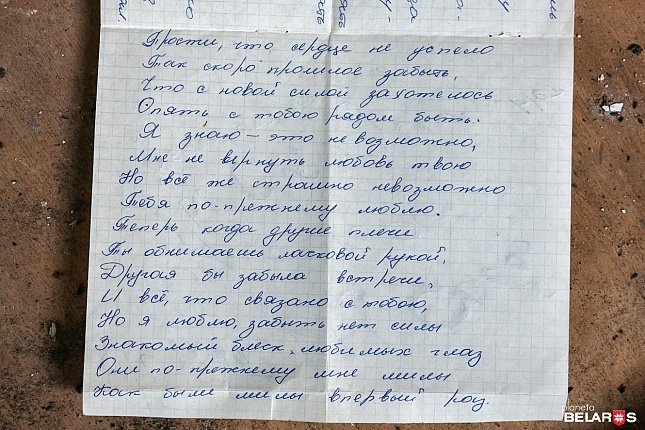 Прости, что сердце не успело
Так скоро прошлое забыть,
Что с новой силой захотелось
Опять с тобою рядом быть.
Я знаю — это не возможно,
Мне не вернуть любовь твою
Но всё же страшно невозможно
Тебя по-прежнему люблю.
Теперь когда другие плечи
Ты обнимаешь ласковой рукой,
Другая бы забыла встречи,
И всё, что связано с тобою,
Но я люблю, забыть нет силы
Знакомый блеск любимых глаз
Они по-прежнему мне милы
Как были милы впервый раз.
planeta
BELARUS